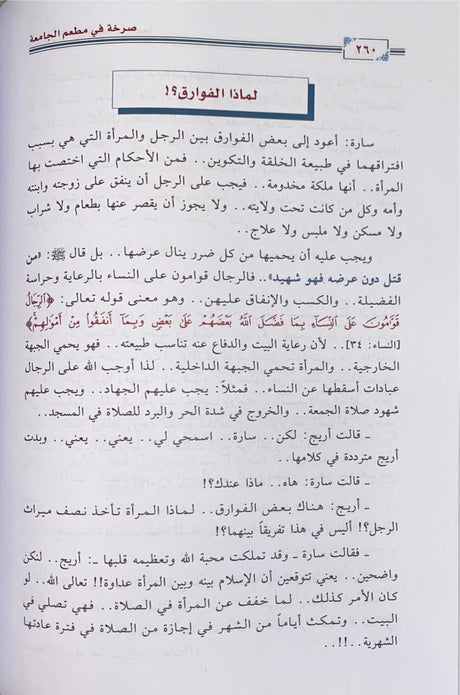 صرخة في مطعم الجامعة
٢٦٠
لماذا الفوارق؟!
سارة: أعود إلى بعض الفوارق بين الرجل والمرأة التي هي بسبب
افتراقهما في طبيعة الخلقة والتكوين.. فمن الأحكام التي اختصت بها
المرأة.. أنها ملكة مخدومة.. فيجب على الرجل أن ينفق على زوجته وابنته
وأمه وكل من كانت تحت ولايته.. ولا يجوز أن يقصر عنها بطعام ولا شراب
ولا مسكن ولا ملبس ولا علاج..
ويجب عليه أن يحميها من كل ضرر ينال عرضها.. بل قال ﷺ: «من
قتل دون عرضه فهو شهيد».. فالرجال قوامون على النساء بالرعاية وحراسة
الفضيلة.. والكسب والإنفاق عليهن.. وهو معنى قوله تعالى: ﴿ٱلرِّجَالُ
قَوَّٰمُونَ عَلَى ٱلنِّسَآءِ بِمَا فَضَّلَ ٱللَّهُ بَعْضَهُمْ عَلَىٰ بَعْضٍ وَبِمَآ أَنفَقُوا۟ مِنْ أَمْوَٰلِهِمْ﴾
[النساء: ٣٤].. لأن رعاية البيت والدفاع عنه تناسب طبيعته.. فهو يحمي الجبهة
الخارجية.. والمرأة تحمي الجبهة الداخلية.. لذا أوجب الله على الرجال
عبادات أسقطها عن النساء.. فمثلاً: يجب عليهم الجهاد.. ويجب عليهم
شهود صلاة الجمعة.. والخروج في شدة الحر والبرد للصلاة في المسجد..
ـ قالت أريج: لكن.. سارة.. اسمحي لي.. يعني.. يعني.. وبدت
أريج مترددة في كلامها..
ـ قالت سارة: هاه.. ماذا عندك؟!
ـ أريج: هناك بعض الفوارق.. لماذا المرأة تأخذ نصف ميراث
الرجل؟! أليس في هذا تفريقاً بينهما؟!
ـ فقالت سارة ـ وقد تملكت محبة الله وتعظيمه قلبها ـ: أريج.. لنكن
واضحين.. يعني تتوقعين أن الإسلام بينه وبين المرأة عداوة!! تعالى الله.. لو
كان الأمر كذلك.. لما خفف عن المرأة في الصلاة.. فهي تصلي في
البيت.. وتمكث أياماً من الشهر في إجازة من الصلاة في فترة عادتها
الشهرية..!!..